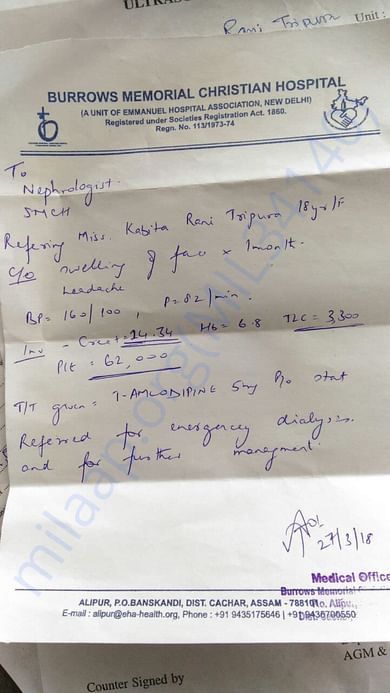 Rani Tripura Unit :
BURROWS MEMORIAL CHRISTIAN HOSPITAL
(A UNIT OF EMMANUEL HOSPITAL ASSOCIATION, NEW DELHI)
Registered under Societies Registration Act. 1860.
Regn. No. 113/1973-74
To
Nephrologist.
SMCH
Refering Miss. Kabita Rani Tripura 18yr/F
c/o swelling of face x 1month.
headache
BP= 160/100, P=82/min.
Inv - Creat=14.34 Hb=6.8 TLC=3,300
Plt = 62,000
T/T given= T-AMLODIPINE 5mg P/o stat
Referred for emergency dialysis.
and for further managment.
27/3/18
Medical Office
Burrows Memorial
ALIPUR, P.O.BANSKANDI, DIST. CACHAR, ASSAM - 788101
E-mail : alipur@eha-health.org, Phone : +91 9435175646 | +91 9436700550
AGM &
Counter Signed by
milaap.org